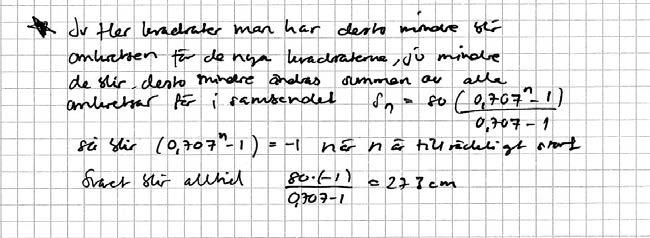 Ju fler kvadrater man har desto mindre blir
omkretsen för de nya kvadraterna, ju mindre
de blir, desto mindre ändras summan av alla
omkretsar för i sambandet Sn = 80 (0,707^n - 1) / 0,707 - 1
så blir (0,707^n - 1) = -1 när n är tillräckligt stort
Svaret blir alltid 80·(-1) / 0,707-1 = 273 cm